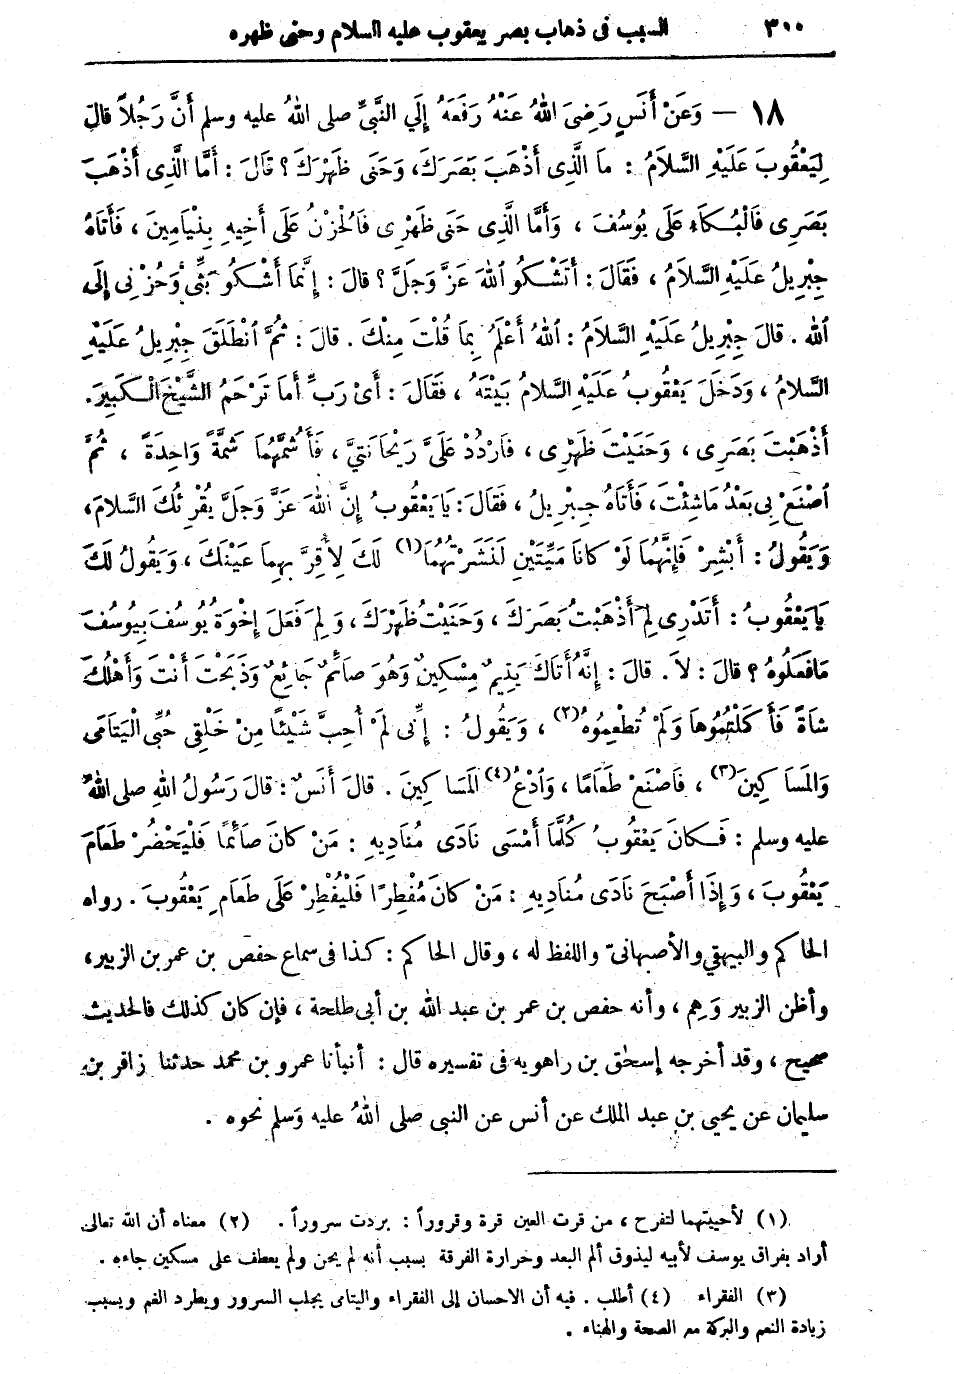 ٣٠٠ السبب فى ذهاب بصر يعقوب عليه السلام وحنى ظهره
١٨ — وَعَنْ أَنَسٍ رَضِىَ اللهُ عَنْهُ رَفَعَهُ إِلَي النَّبِيِّ صلى اللهُ عليه وسلم أَنَّ رَجُلاً قَالَ
لِيَعْقُوبَ عَلَيْهِ السَّلاَمُ : مَا الَّذِى أَذْهَبَ بَصَرَكَ، وَحَنَى ظَهْرَكَ ؟ قَالَ : أَمَّا الَّذِى أَذْهَبَ
بَصَرِى فَالْبُكَاءِ عَلَى يُوسُفَ ، وَأَمَّا الَّذِى حَنَى ظَهْرِى فَالْحُزْنُ عَلَى أَخِيهِ بِنْيَامِينَ ، فَأَتَاهُ
جِبْرِيلُ عَلَيْهِ السَّلاَمُ ، فَقَالَ : أَتَشْكُو اللهَ عَزَّ وَجَلَّ ؟ قَالَ : إِنَّمَا أَشْكُو بَثِّى وَحُزْنِى إِلَى
اللهِ . قَالَ جِبْرِيلُ عَلَيْهِ السَّلاَمُ : اللهُ أَعْلَمُ بِمَا قُلْتَ مِنْكَ . قَالَ : ثُمَّ انْطَلَقَ جِبْرِيلُ عَلَيْهِ
السَّلاَمُ ، وَدَخَلَ يَعْقُوبُ عَلَيْهِ السَّلاَمُ بَيْتَهُ ، فَقَالَ : أَىْ رَبِّ أَمَا تَرْحَمُ الشَّيْخَ الْكَبِيرَ.
أَذْهَبْتَ بَصَرِى ، وَحَنَيْتَ ظَهْرِى ، فَارْدُدْ عَلَىَّ رَيْحَانَتَيَّ ، فَأَشُمَّهُمَا شَمَّةً وَاحِدَةً ، ثُمَّ
اصْنَعْ بِى بَعْدُ مَاشِئْتَ، فَأَتَاهُ جِبْرِيلُ ، فَقَالَ : يَا يَعْقُوبُ إِنَّ اللهَ عَزَّ وَجَلَّ يُقْرِئُكَ السَّلاَمَ،
وَيَقُولُ : أَبْشِرْ فَإِنَّهُمَا لَوْ كَانَا مَيِّتَيْنِ لَنَشَرْتُهُمَا(١) لَكَ لِأُقِرَّ بِهِمَا عَيْنَكَ ، وَيَقُولُ لَكَ
يَا يَعْقُوبُ : أَتَدْرِى لِمَ أَذْهَبْتُ بَصَرَكَ ، وَحَنَيْتُ ظَهْرَكَ ، وَلِمَ فَعَلَ إِخْوَةُ يُوسُفَ بِيُوسُفَ
مَافَعَلُوهُ ؟ قَالَ : لاَ. قَالَ : إِنَّهُ أَتَاكَ يَتِيمٌ مِسْكِينٌ وَهُوَ صَائِمٌ جَائِعٌ وَذَبَحْتَ أَنْتَ وَأَهْلُكَ
شَاةً فَأَكَلْتُمُوهَا وَلَمْ تُطْعِمُوهُ(٢) ، وَيَقُولُ : إِنِّى لَمْ أُحِبَّ شَيْئًا مِنْ خَلْقِى حُبِّى الْيَتَامَى
وَالْمَسَاكِينَ(٣) ، فَاصْنَعْ طَعَامًا ، وَادْعُ(٤) الْمَسَاكِينَ . قَالَ أَنَسٌ : قَالَ رَسُولُ اللهِ صلى اللهُ
عليه وسلم : فَكَانَ يَعْقُوبُ كُلَّمَا أَمْسَى نَادَى مُنَادِيهِ : مَنْ كَانَ صَائِمًا فَلْيَحْضُرْ طَعَامَ
يَعْقُوبَ ، وَإِذَا أَصْبَحَ نَادَى مُنَادِيهِ : مَنْ كَانَ مُفْطِرًا فَلْيُفْطِرْ عَلَى طَعَامِ يَعْقُوبَ . رواه
الحاكم والبيهقي والأصبهانىّ واللفظ له ، وقال الحاكم : كذا فى سماع حفص بن عمر بن الزبير،
وأظن الزبير وَهِم ، وأنه حفص بن عمر بن عبد الله بن أبى طلحة ، فإن كان كذلك فالحديث
صحيح ، وقد أخرجه إسحٰق بن راهويه فى تفسيره قال : أنبأنا عمرو بن محمد حدثنا زافر بن
سليمان عن يحيى بن عبد الملك عن أنس عن النبى صلى اللهُ عليه وَسلم نحوه .
(١) لأحييتهما لتفرح ، من قرت العين قرة وقروراً : بردت سروراً . (٢) معناه أن الله تعالى
أراد بفراق يوسف لأبيه ليذوق ألم البعد وحرارة الفرقة بسبب أنه لم يحن ولم يعطف على مسكين جاءه .
(٣) الفقراء (٤) أطلب . فيه أن الاحسان إلى الفقراء واليتامى يجلب السرور ويطرد الغم ويسبب
زيادة النعم والبركة مع الصحة والهناء .